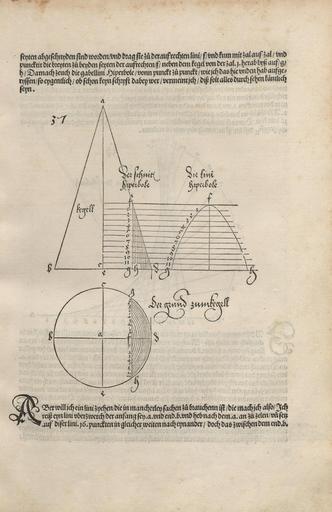 seyten abgeschnyden sind worden/vnd drag sie zů der aufrechten lini/f/vnd kum mit zal auf zal/vnd
punctir die breyten zů beyden seyten der aufrechten f/neben dem kegel von der zal. herab byß auf/g/
h/Darnach zeuch die gabellini Hiperbole/vonn punckt zů punckt/wie jch das hie vnden hab aufge=
ryssen/so eygentlich/ob schon keyn schryft dabey wer/vermeint jch/diß solt alles durch sehen
seyn.
37
a
Der schnit
hiperbole
Die lini
hiperbole
kegell
f
f
b
c
e
g
h
d
g
h
c
g
Der grund zum kegell
b
a
f
d
e
h
ABer will ich ein lini zyehen die in mancherley sachen zů brauchenn ist/die mach jch also/Jch
reiß eyn lini vberzwerch der anfang sey.a.vnd end.b.vnd heb nach dem.a.an zů zelen/vñ setz
auf diser lini.16.punckten in gleicher weiten nach eynander/doch das zwischen dem end.b.